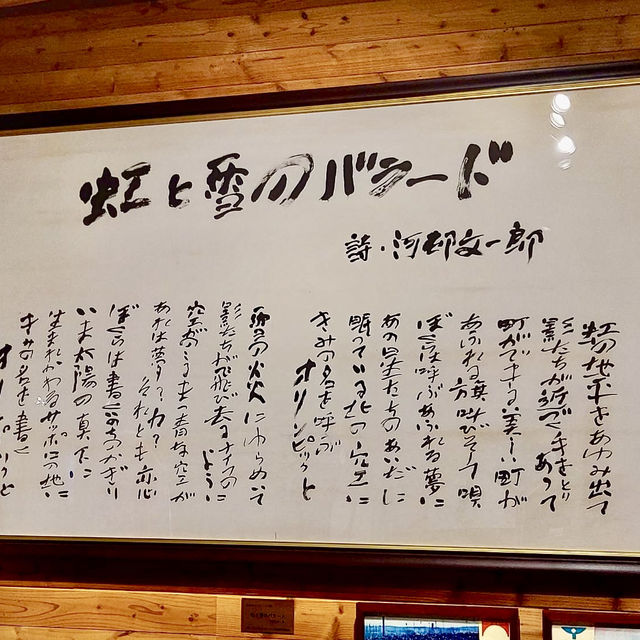 虹と雪のバラード
詩・河邨文一郎
虹の地平をあゆみ出て
影たちが近づく手をとり
あって
町ができる美しい町が
あふれる旗叫びそして唄
ぼくらは呼ぶあふれる夢に
あの星たちのあいだに
眠っている北の空に
きみの名を呼ぶ
オリンピックと
雪の炎にゆらめいて
影たちが飛び去るナイフの
ように
空がこうまっ青な空が
あれは夢?力?それとも恋
ぼくらは書くいのちかぎり
いま太陽の真下に
生まれかわるサッポロの地に
きみの名を書く
オリンピックと